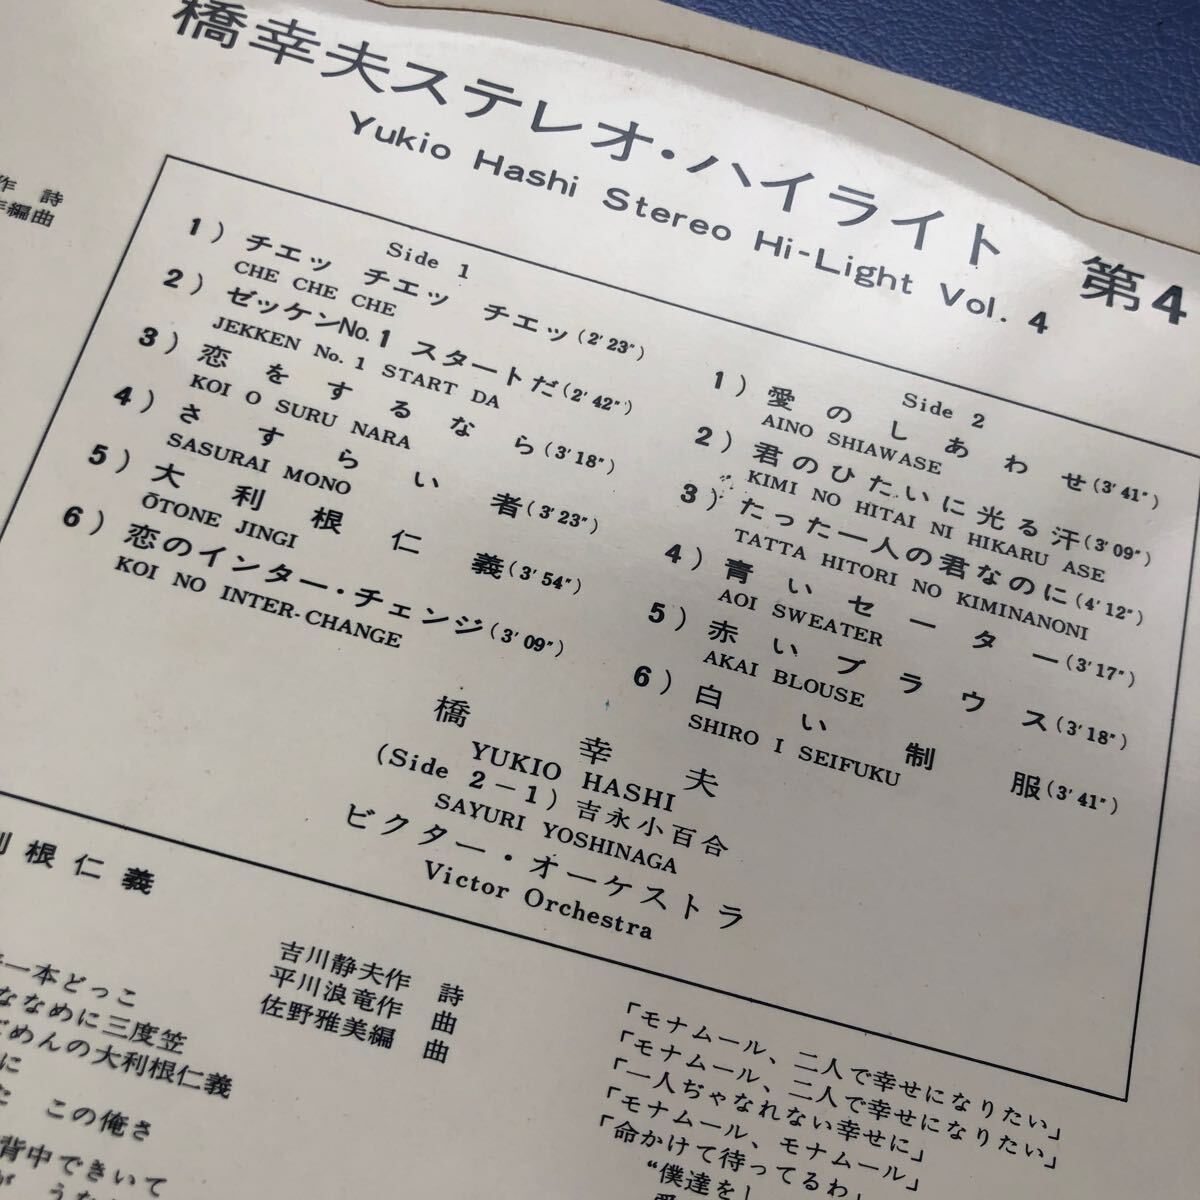 橋幸夫ステレオ・ハイライト 第4
Yukio Hashi Stereo Hi-Light Vol. 4
作 詩
編曲
Side 1
1) チエッ チエッ チエッ(2'23")
CHE CHE CHE
2) ゼッケンNo.1 スタートだ(2'42")
JEKKEN No. 1 START DA
3) 恋をするなら(3'18")
KOI O SURU NARA
4) さすらい者(3'23")
SASURAI MONO
5) 大利根仁義(3'54")
ŌTONE JINGI
6) 恋のインター・チェンジ(3'09")
KOI NO INTER-CHANGE
Side 2
1) 愛のしあわせ(3'41")
AINO SHIAWASE
2) 君のひたいに光る汗(3'09")
KIMI NO HITAI NI HIKARU ASE
3) たった一人の君なのに(4'12")
TATTA HITORI NO KIMINANONI
4) 青いセーター(3'17")
AOI SWEATER
5) 赤いブラウス(3'18")
AKAI BLOUSE
6) 白い制服(3'41")
SHIRO I SEIFUKU
橋 幸 夫
YUKIO HASHI
(Side 2-1) 吉永小百合
SAYURI YOSHINAGA
ビクター・オーケストラ
Victor Orchestra
利根仁義
吉川静夫作 詩
平川浪竜作 曲
佐野雅美編 曲
一本どっこ
ななめに三度笠
めんの大利根仁義
に
この俺さ
背中できいて
「モナムール、二人で幸せになりたい」
「モナムール、二人で幸せになりたい」
「一人ぢゃなれない幸せに」
「モナムール、モナムール」
「命かけて待ってるわ」
“僕達をし